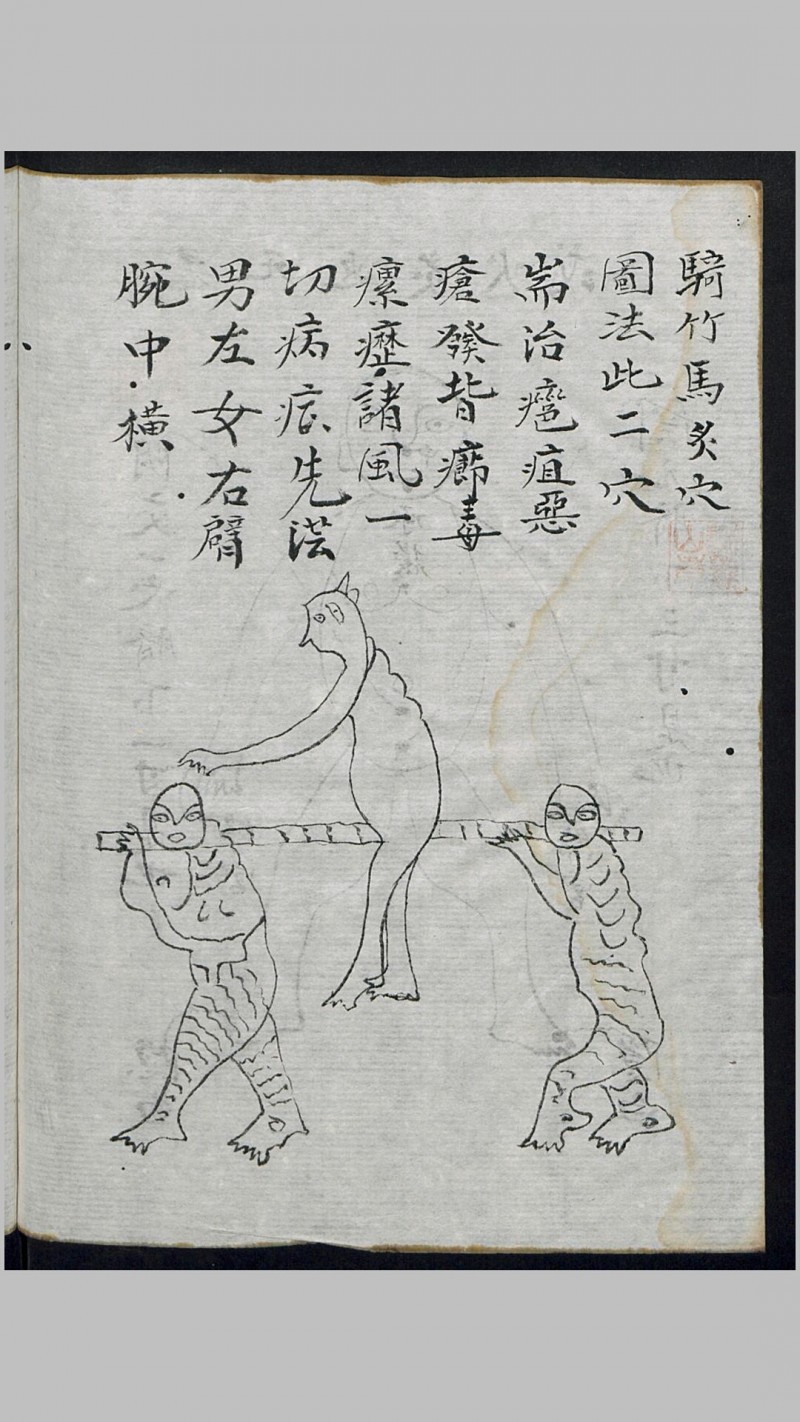 騎竹馬灸穴
圖法此二穴
耑治癰疽惡
瘡發背癤毒
瘰癧諸風一
切病症先從
男左女右臂
腕中橫